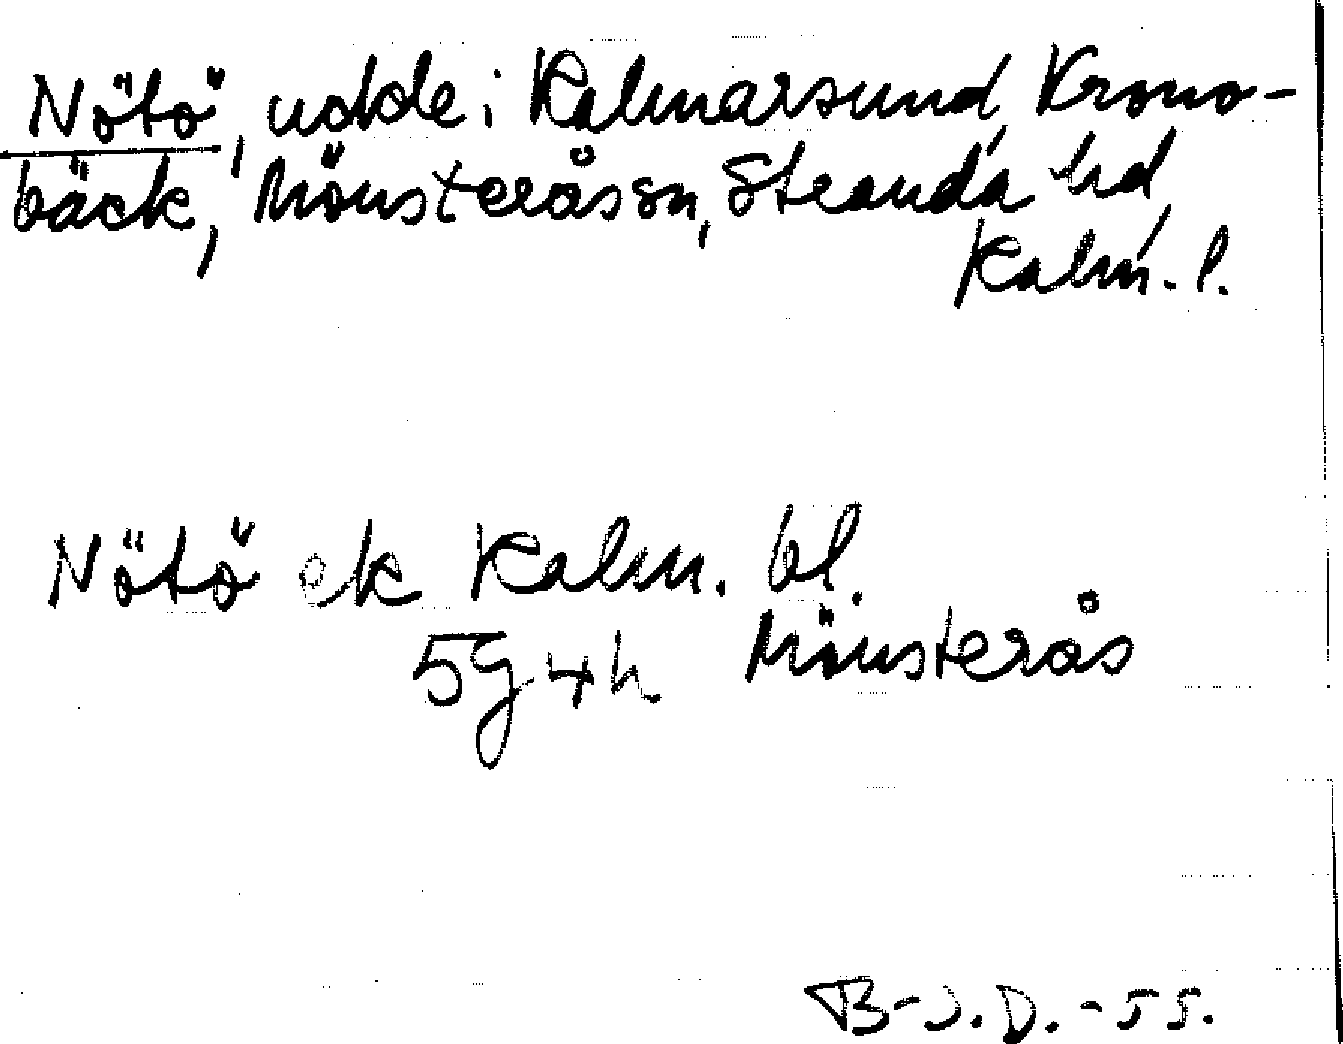 Nötö, udde i Kalmarsund, Krono-
bäck, Mönsterås sn, Stranda hd,
Kalm. l.
Nötö ek Kalm. bl.
5g4h Mönsterås
B-J.D.-55.